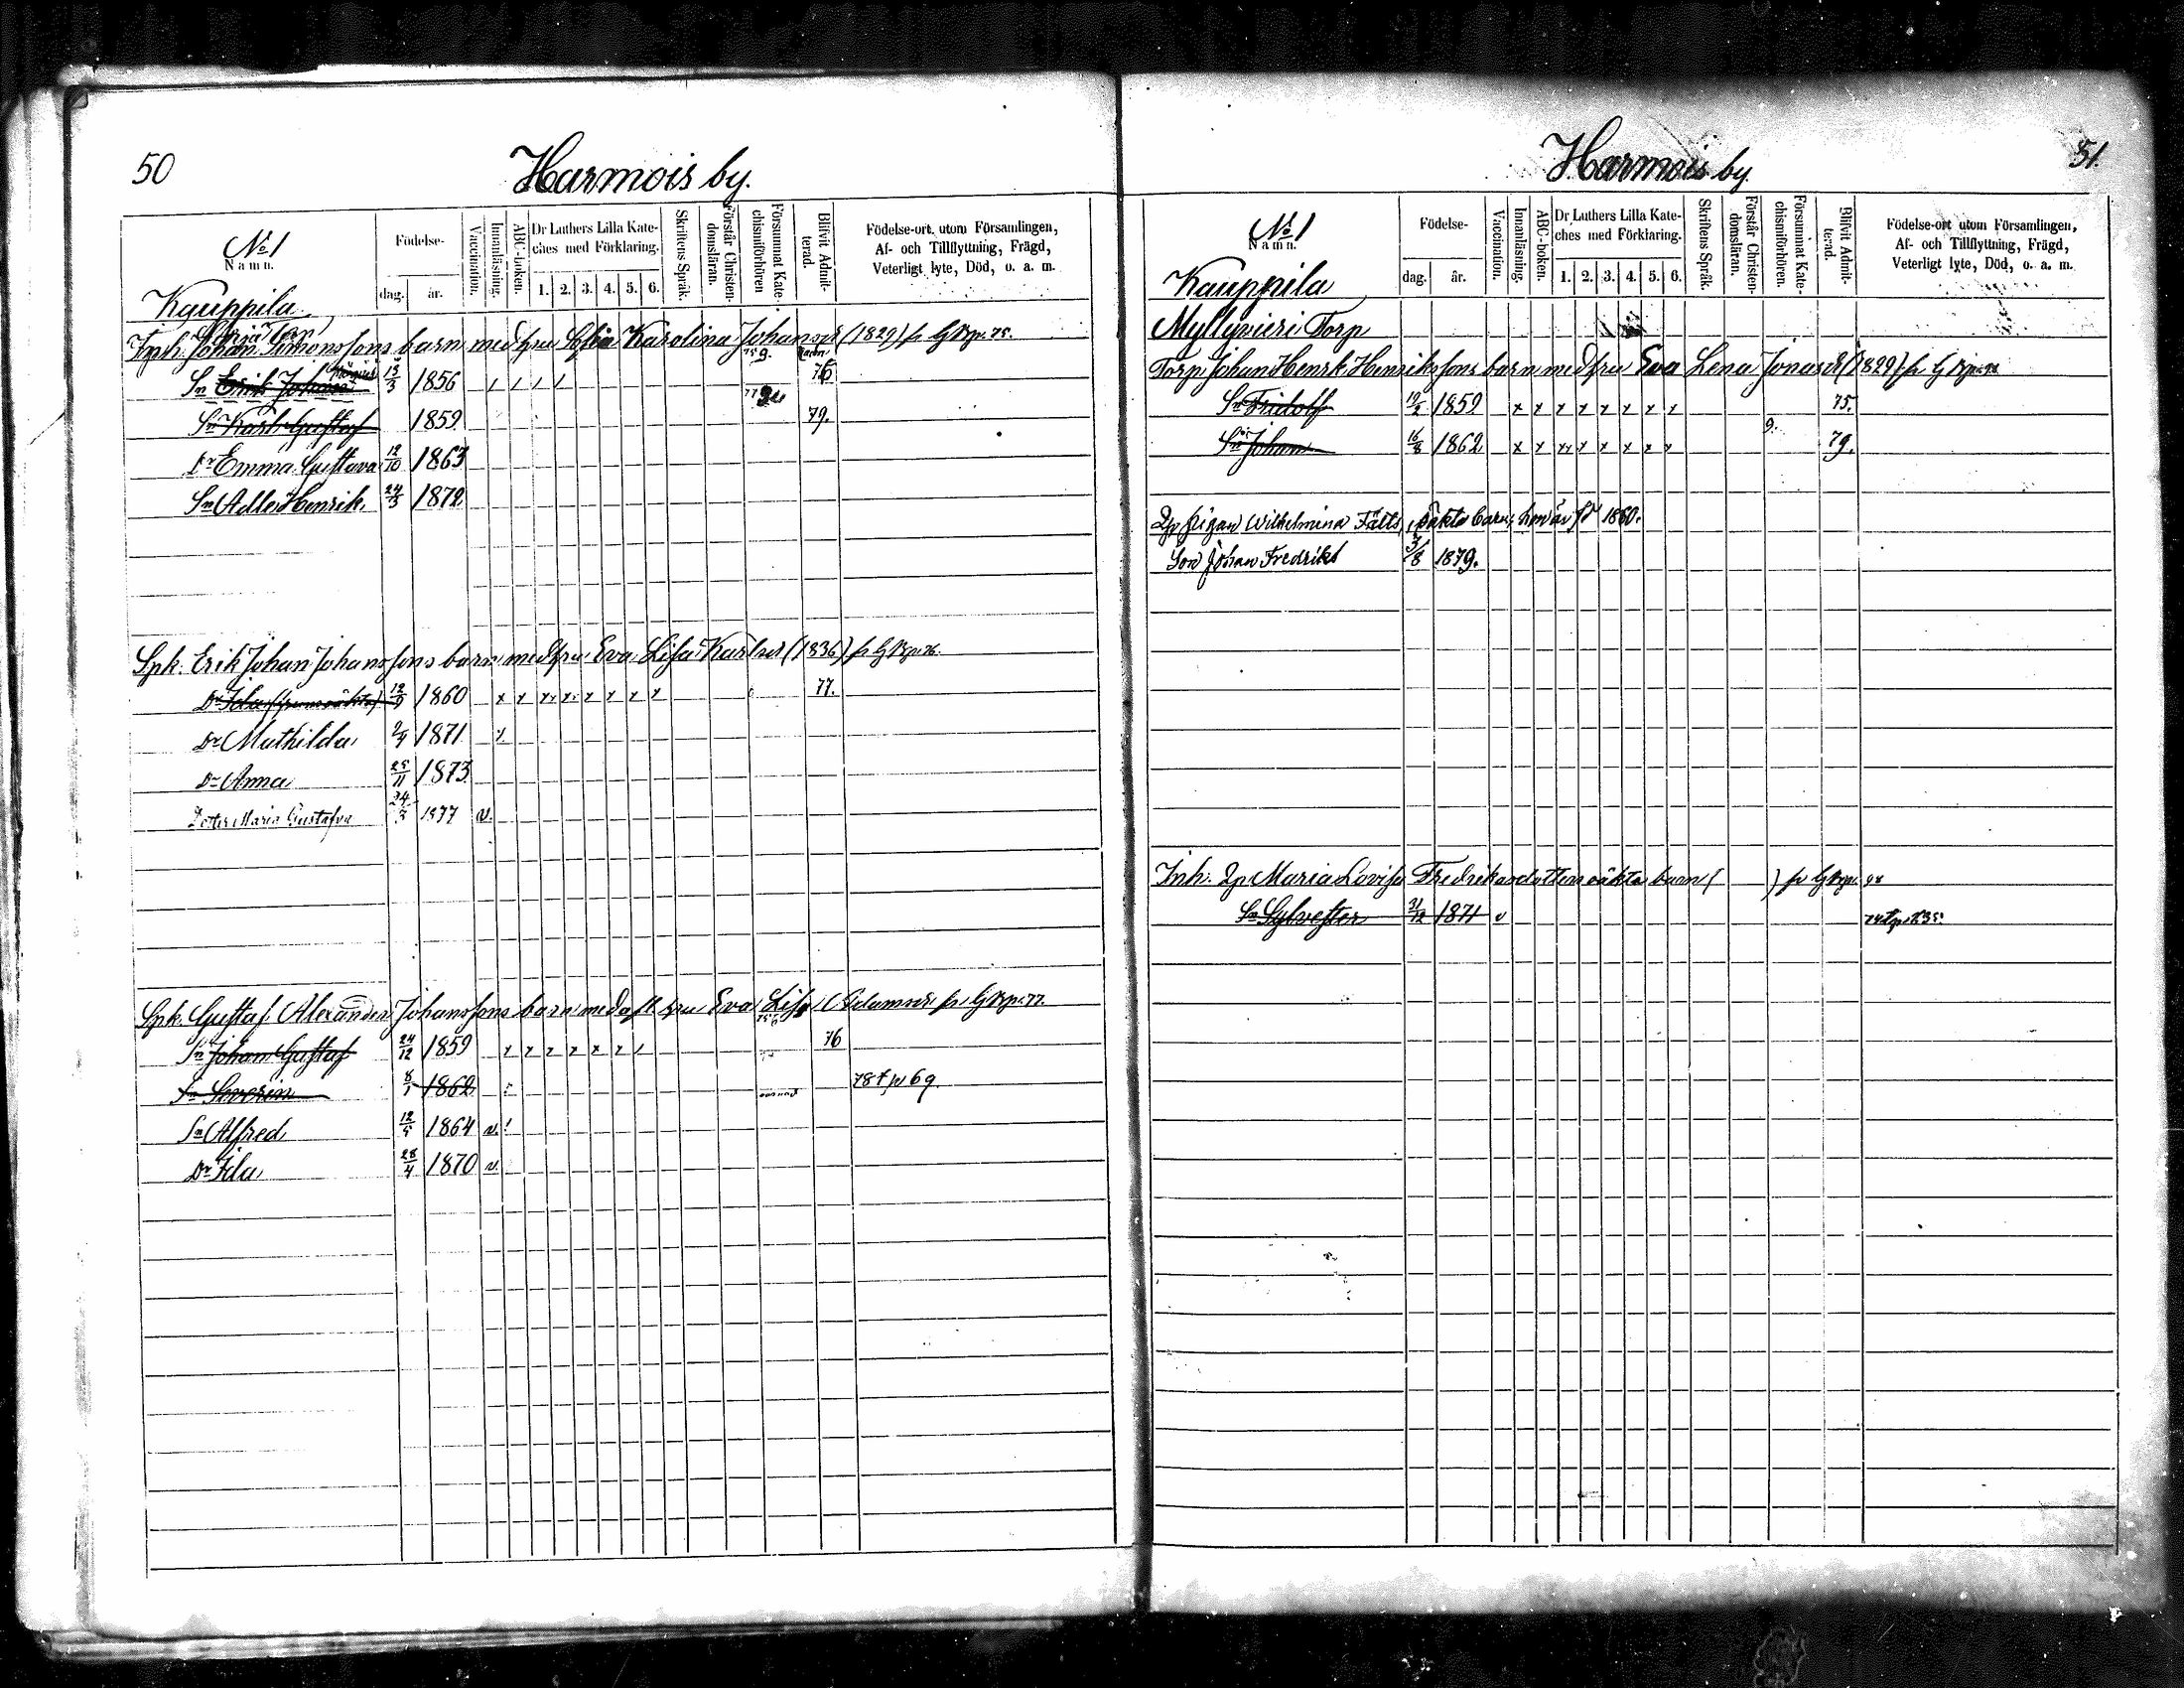 50
Harmois by.
No 1
Namn.
Födelse-
dag.
år.
Vaccination.
Innanläsning.
ABC-boken.
Dr Luthers Lilla Kate-
ches med Förklaring.
1. 2. 3. 4. 5. 6.
Skriftens Språk.
Förstår Christen-
domsläran.
Försummat Kate-
chismiförhören
Blifvit Admit-
terad.
Födelse-ort, utom Församlingen,
Af- och Tillflyttning, Frägd,
Veterligt lyte, Död, o. a. m.
Kauppila
Inh. Johan Simonssons barn med hru Sofia Karolina Johansdr (1829) fr GBp. 75.
Sn Erik Johan 13/3 1856 76
Sn Karl Gustaf 1859 79.
Dr Emma Gustava 12/10 1863
Sn Adle Henrik 24/3 1872
Spk. Erik Johan Johanssons barn med hru Eva Lisa Karlsdr (1836) fr GBp. 76.
Dr Ida 1860 77.
Dr Mathilda 1871
Dr Anna 25/11 1873
Dotter Maria Gustafva 24/3 1877 v.
Spk. Gustaf Alexander Johanssons barn med hru Eva Lisa Adamsdr fr GBp. 77.
Sn Johan Gustaf 24/12 1859 76
Sn Severin 8/1 1862 78 t. p 69.
Sn Alfred 12/5 1864 v.
Dr Ida 28/4 1870 v.
51.
Harmois by.
No 1
Namn.
Födelse-
dag.
år.
Vaccination.
Innanläsning.
ABC-boken.
Dr Luthers Lilla Kate-
ches med Förklaring.
1. 2. 3. 4. 5. 6.
Skriftens Språk.
Förstår Christen-
domsläran.
Försummat Kate-
chismiförhören.
Blifvit Admit-
terad.
Födelse-ort utom Församlingen,
Af- och Tillflyttning, Frägd,
Veterligt lyte, Död, o. a. m.
Kauppila
Myllynieri Torp
Torp. Johan Henrik Henrikssons barn med hru Eva Lena Jonasdr (1829) fr GBp.
Sn Fridolf 1859 x x x x x x x x 75.
Sn Johan 16/8 1862 x x x x x x x x 9. 79.
Qp pigan Wilhelmina Fälts oäkta barn, hon är fd 1860.
Son Johan Fredrik 3/8 1879.
Inh. Qp Maria Lovisa Fredriksdotters oäkta barn ( ) fr GBp. 98
Sn Sylvester 31/12 1871 v